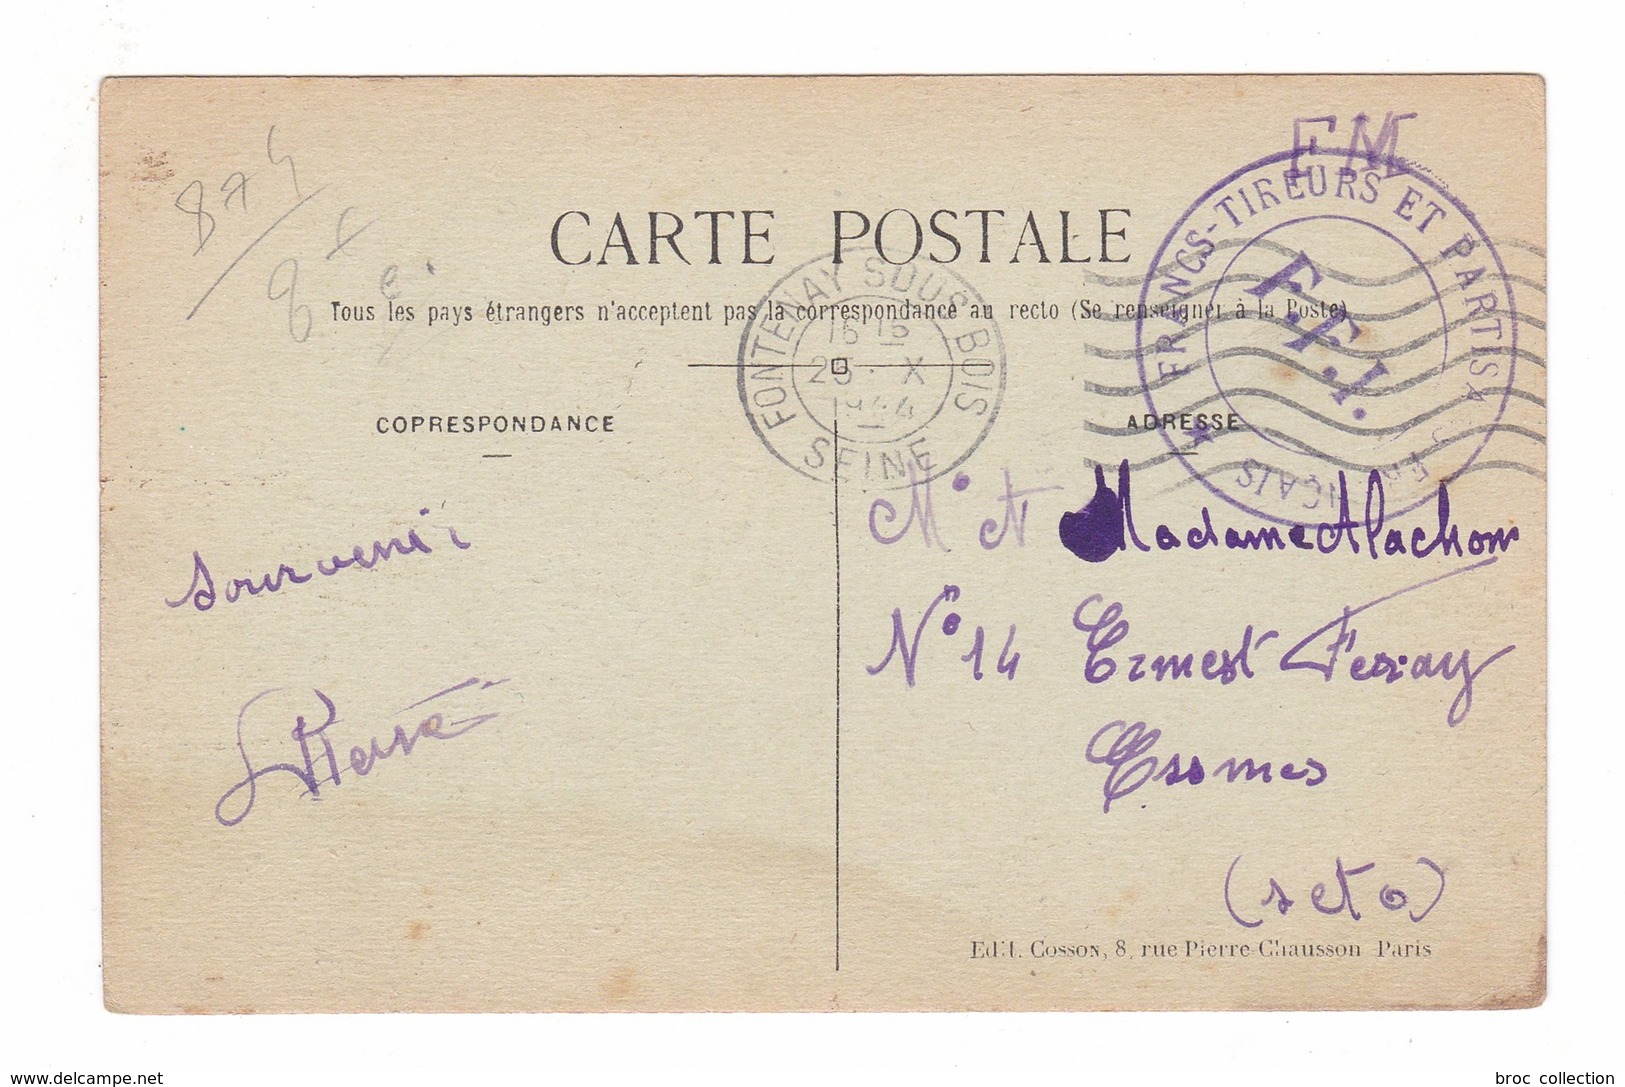 874
8
FM
FRANCS-TIREURS ET PARTISA FRA NÇAIS
F.F.I.
CARTE POSTALE
Tous les pays étrangers n'acceptent pas la correspondance au recto (Se renseigner à la Poste)
FONTENAY SOUS BOIS
16 15
25 X
1944
SEINE
CORRESPONDANCE
ADRESSE
Souvenir
Pierre
Mr et Madame Alachon
N° 14 Ernest Feray
Essonnes
(S et O)
Edit. Cosson, 8, rue Pierre-Chausson Paris
delcampe.net
broc_collection